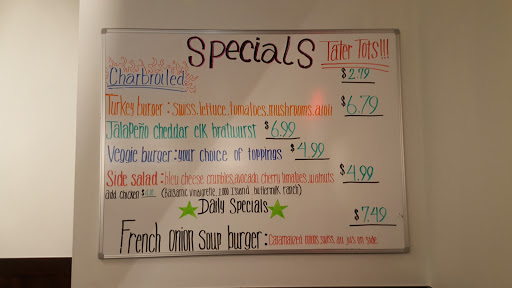 Specials Tater Tots!!!
Charbroiled $2.79
Turkey burger: Swiss, lettuce, tomatoes, mushrooms, aioli $6.79
Jalapeño cheddar elk bratwurst $6.99
Veggie burger: your choice of toppings $4.99
Side salad: bleu cheese crumbles, avocado, cherry tomatoes, walnuts $4.99
add chicken: (Balsamic vinaigrette, 1,000 Island, buttermilk ranch)
Daily Specials
$7.49
French Onion Soup burger: Caramalized onions, swiss, au jus on side.